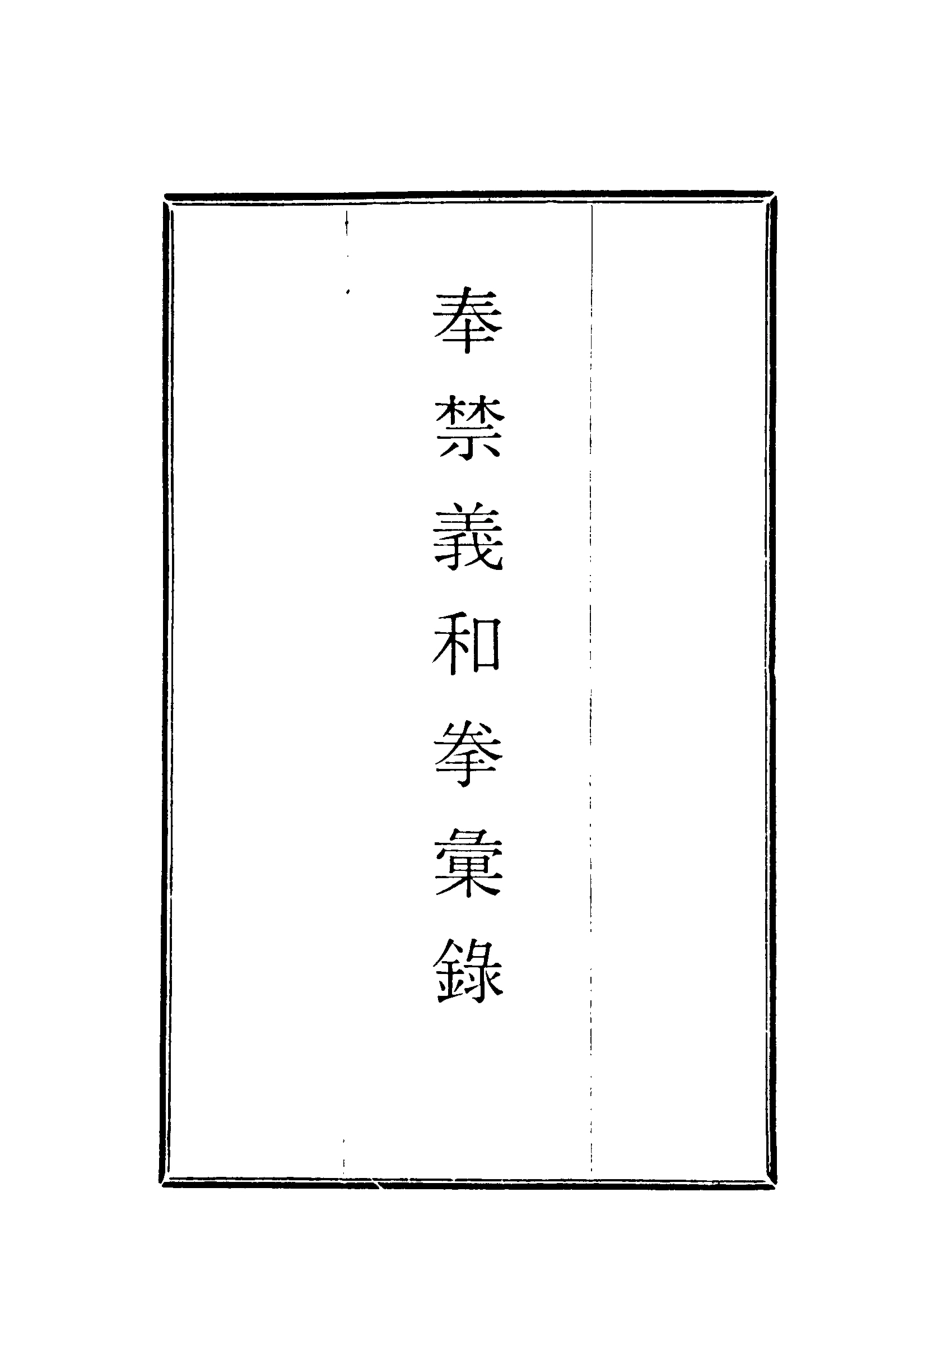 奉禁義和拳彙錄